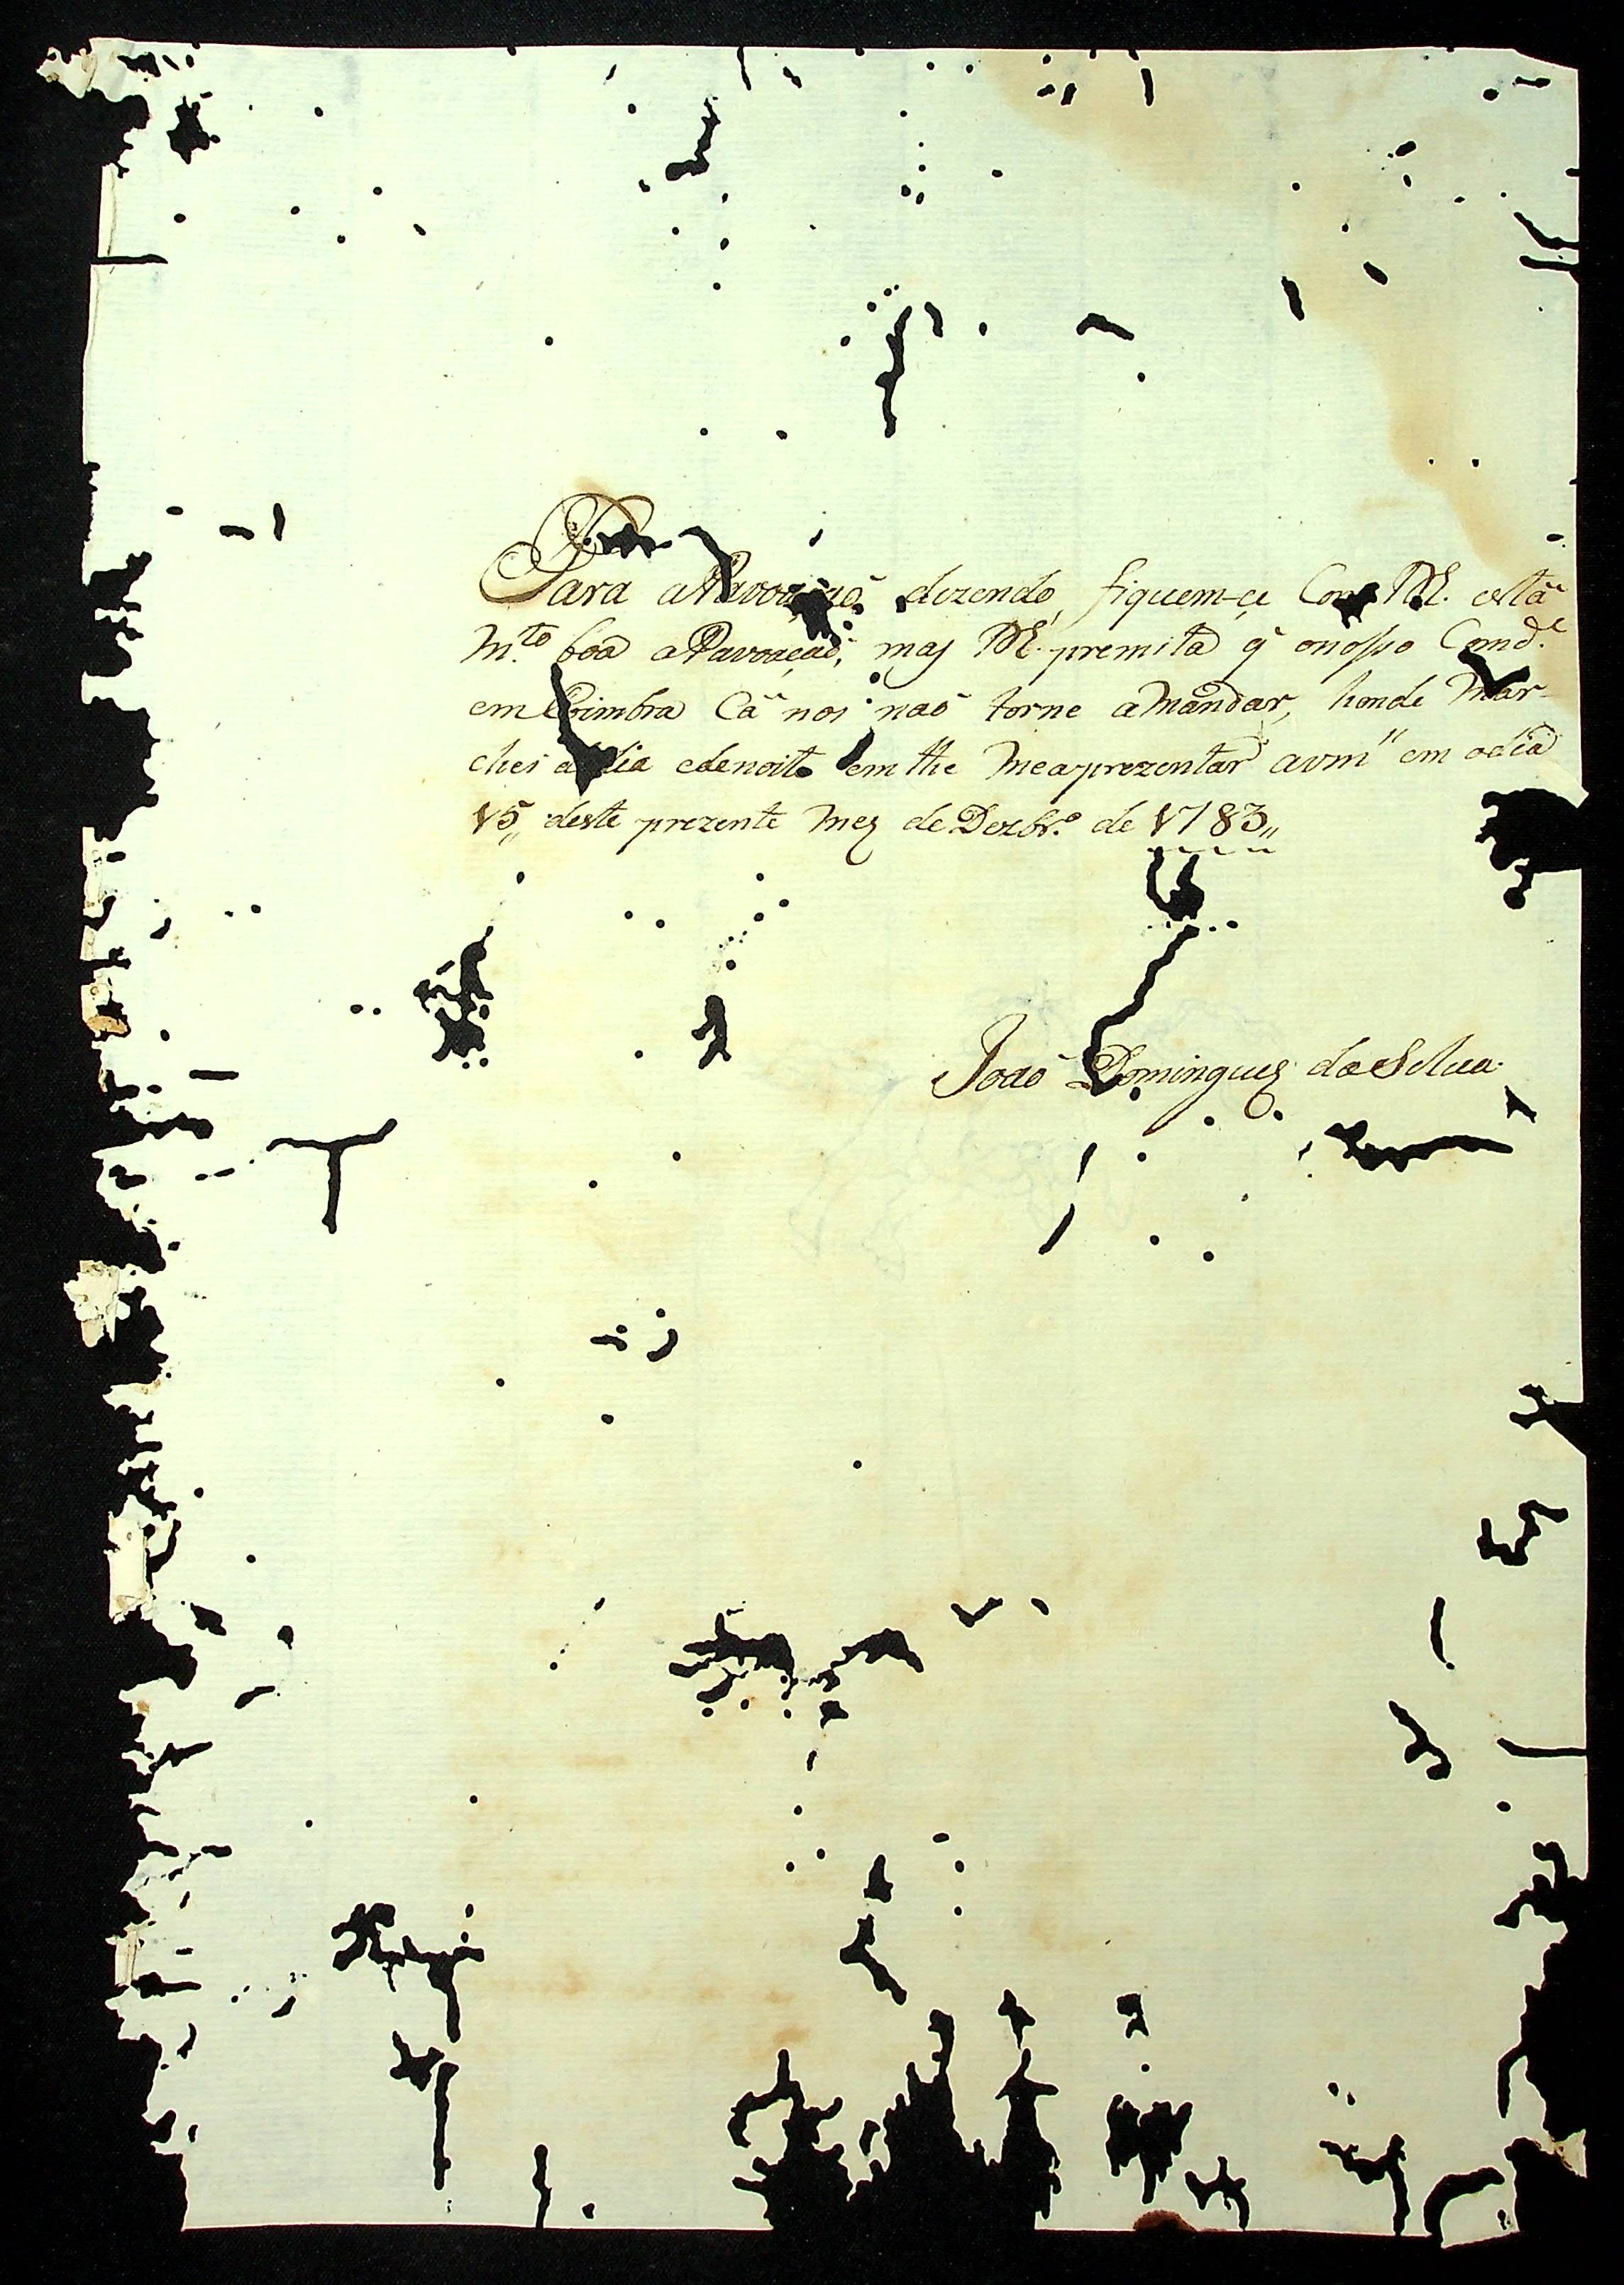 Para a Pavoaçaõ, dizendo, fiquem-çe Com VM.ce está
m.to boa a Pavoaçaõ, mas VM.ce premita q̃ o nosso Comd.e
em Coimbra Cá nos naõ torne a mandar, honde mar-
chei a dia e de noite em the me aprezentar a vm" em o dia
15,, deste prezente mez de Dezbr.o de 1783,,
Joaõ Domingues da Silva